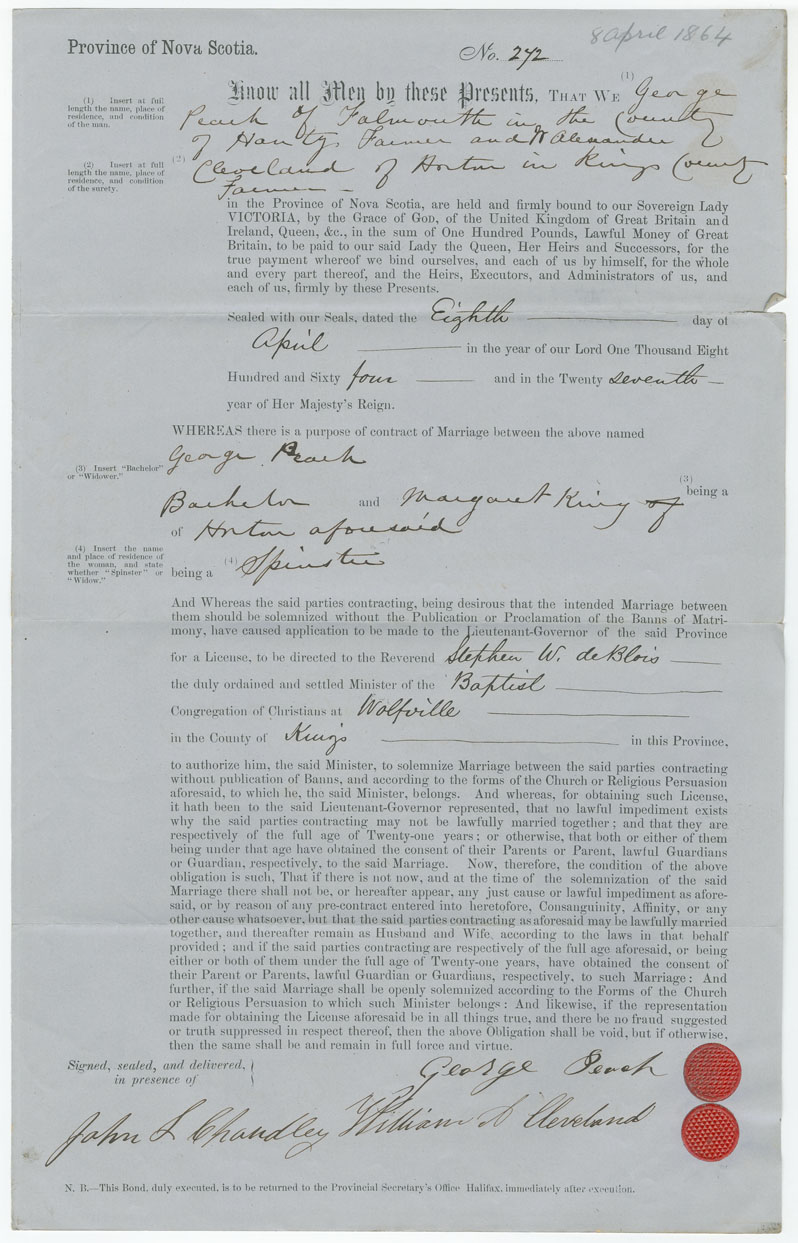 8 April 1864
Province of Nova Scotia.
No. 272
Know all Men by these Presents, THAT WE (1) George
(1) Insert at full
length the name, place of
residence, and condition
of the man.
Peach of Falmouth in the County
of Hants Farmer and W Alexander
(2) Insert at full
length the name, place of
residence, and condition
of the surety.
(2) Cleveland of Horton in Kings County
Farmer
in the Province of Nova Scotia, are held and firmly bound to our Sovereign Lady
VICTORIA, by the Grace of GOD, of the United Kingdom of Great Britain and
Ireland, Queen, &c., in the sum of One Hundred Pounds, Lawful Money of Great
Britain, to be paid to our said Lady the Queen, Her Heirs and Successors, for the
true payment whereof we bind ourselves, and each of us by himself, for the whole
and every part thereof, and the Heirs, Executors, and Administrators of us, and
each of us, firmly by these Presents.
Sealed with our Seals, dated the Eighth day of
April in the year of our Lord One Thousand Eight
Hundred and Sixty four and in the Twenty seventh
year of Her Majesty's Reign.
WHEREAS there is a purpose of contract of Marriage between the above named
George Peach
(3) Insert "Bachelor"
or "Widower."
(3) being a
Bachelor and Margaret King of
of Horton aforesaid
(4) Insert the name
and place of residence of
the woman, and state
whether "Spinster" or
"Widow."
being a (4) Spinster
And Whereas the said parties contracting, being desirous that the intended Marriage between
them should be solemnized without the Publication or Proclamation of the Banns of Matri-
mony, have caused application to be made to the Lieutenant-Governor of the said Province
for a License, to be directed to the Reverend Stephen W. deBlois
the duly ordained and settled Minister of the Baptist
Congregation of Christians at Wolfville
in the County of Kings in this Province,
to authorize him, the said Minister, to solemnize Marriage between the said parties contracting
without publication of Banns, and according to the forms of the Church or Religious Persuasion
aforesaid, to which he, the said Minister, belongs. And whereas, for obtaining such License,
it hath been to the said Lieutenant-Governor represented, that no lawful impediment exists
why the said parties contracting may not be lawfully married together; and that they are
respectively of the full age of Twenty-one years; or otherwise, that both or either of them
being under that age have obtained the consent of their Parents or Parent, lawful Guardians
or Guardian, respectively, to the said Marriage. Now, therefore, the condition of the above
obligation is such, That if there is not now, and at the time of the solemnization of the said
Marriage there shall not be, or hereafter appear, any just cause or lawful impediment as afore-
said, or by reason of any pre-contract entered into heretofore, Consanguinity, Affinity, or any
other cause whatsoever, but that the said parties contracting as aforesaid may be lawfully married
together, and thereafter remain as Husband and Wife, according to the laws in that behalf
provided; and if the said parties contracting are respectively of the full age aforesaid, or being
either or both of them under the full age of Twenty-one years, have obtained the consent of
their Parent or Parents, lawful Guardian or Guardians, respectively, to such Marriage: And
further, if the said Marriage shall be openly solemnized according to the Forms of the Church
or Religious Persuasion to which such Minister belongs: And likewise, if the representation
made for obtaining the License aforesaid be in all things true, and there be no fraud suggested
or truth suppressed in respect thereof, then the above Obligation shall be void, but if otherwise,
then the same shall be and remain in full force and virtue.
Signed, sealed, and delivered,
in presence of
George Peach
John L Chandley William A Cleveland
N. B.—This Bond, duly executed, is to be returned to the Provincial Secretary's Office Halifax, immediately after execution.